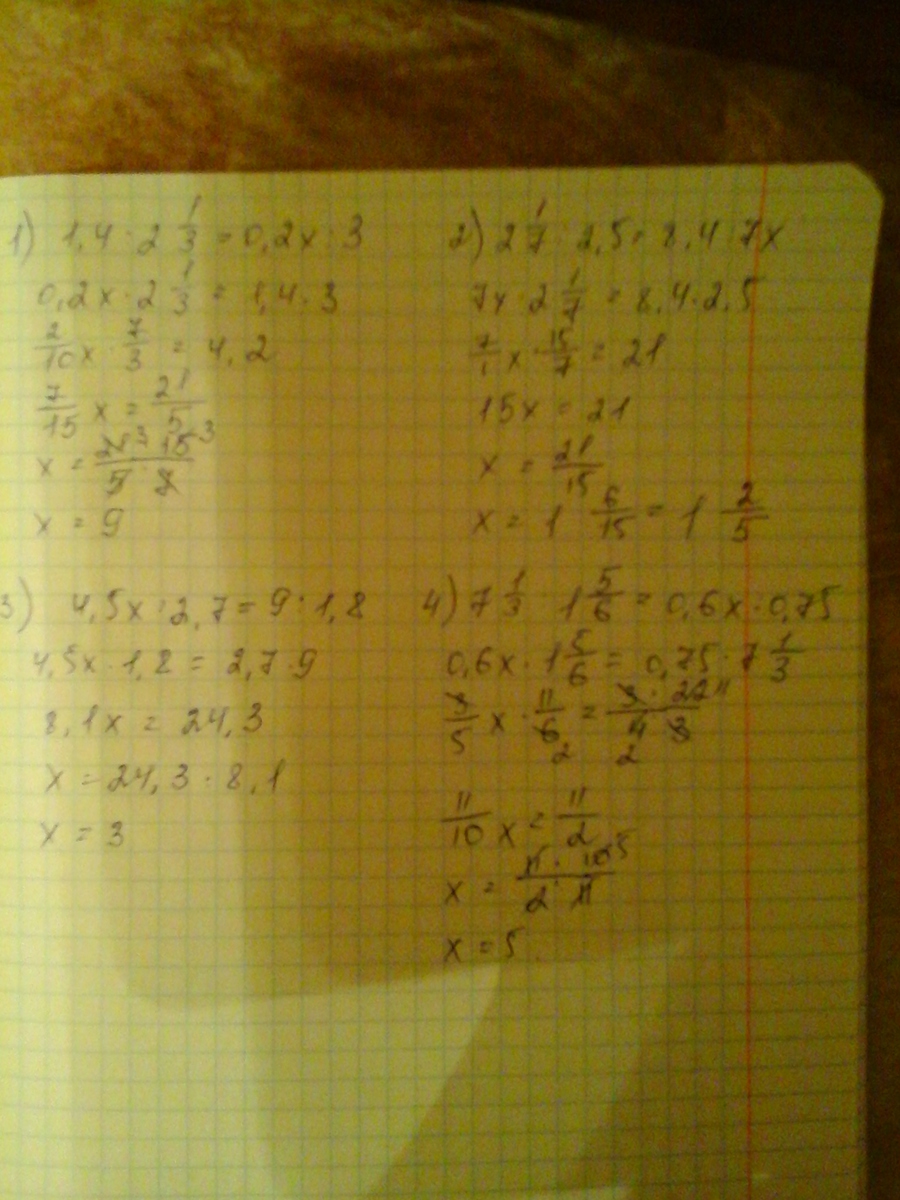 1) 1,4 : 2 1/3 = 0,2x : 3
0,2x · 2 1/3 = 1,4 · 3
2/10 x · 7/3 = 4,2
7/15 x = 21/5
x = 21 3 · 15 3 / 5 · 7
x = 9
2) 2 1/7 : 2,5 = 8,4 : 7x
7x · 2 1/7 = 8,4 · 2,5
7/1 x · 15/7 = 21
15x = 21
x = 21/15
x = 1 6/15 = 1 2/5
3) 4,5x : 2,7 = 9 : 1,8
4,5x · 1,8 = 2,7 · 9
8,1x = 24,3
x = 24,3 : 8,1
x = 3
4) 7 1/3 : 1 5/6 = 0,6x : 0,75
0,6x · 1 5/6 = 0,75 · 7 1/3
3/5 x · 11/6 2 = 3 · 22 11 / 4 2 · 3
11/10 x = 11/2
x = 11 · 10 5 / 2 · 11
x = 5.